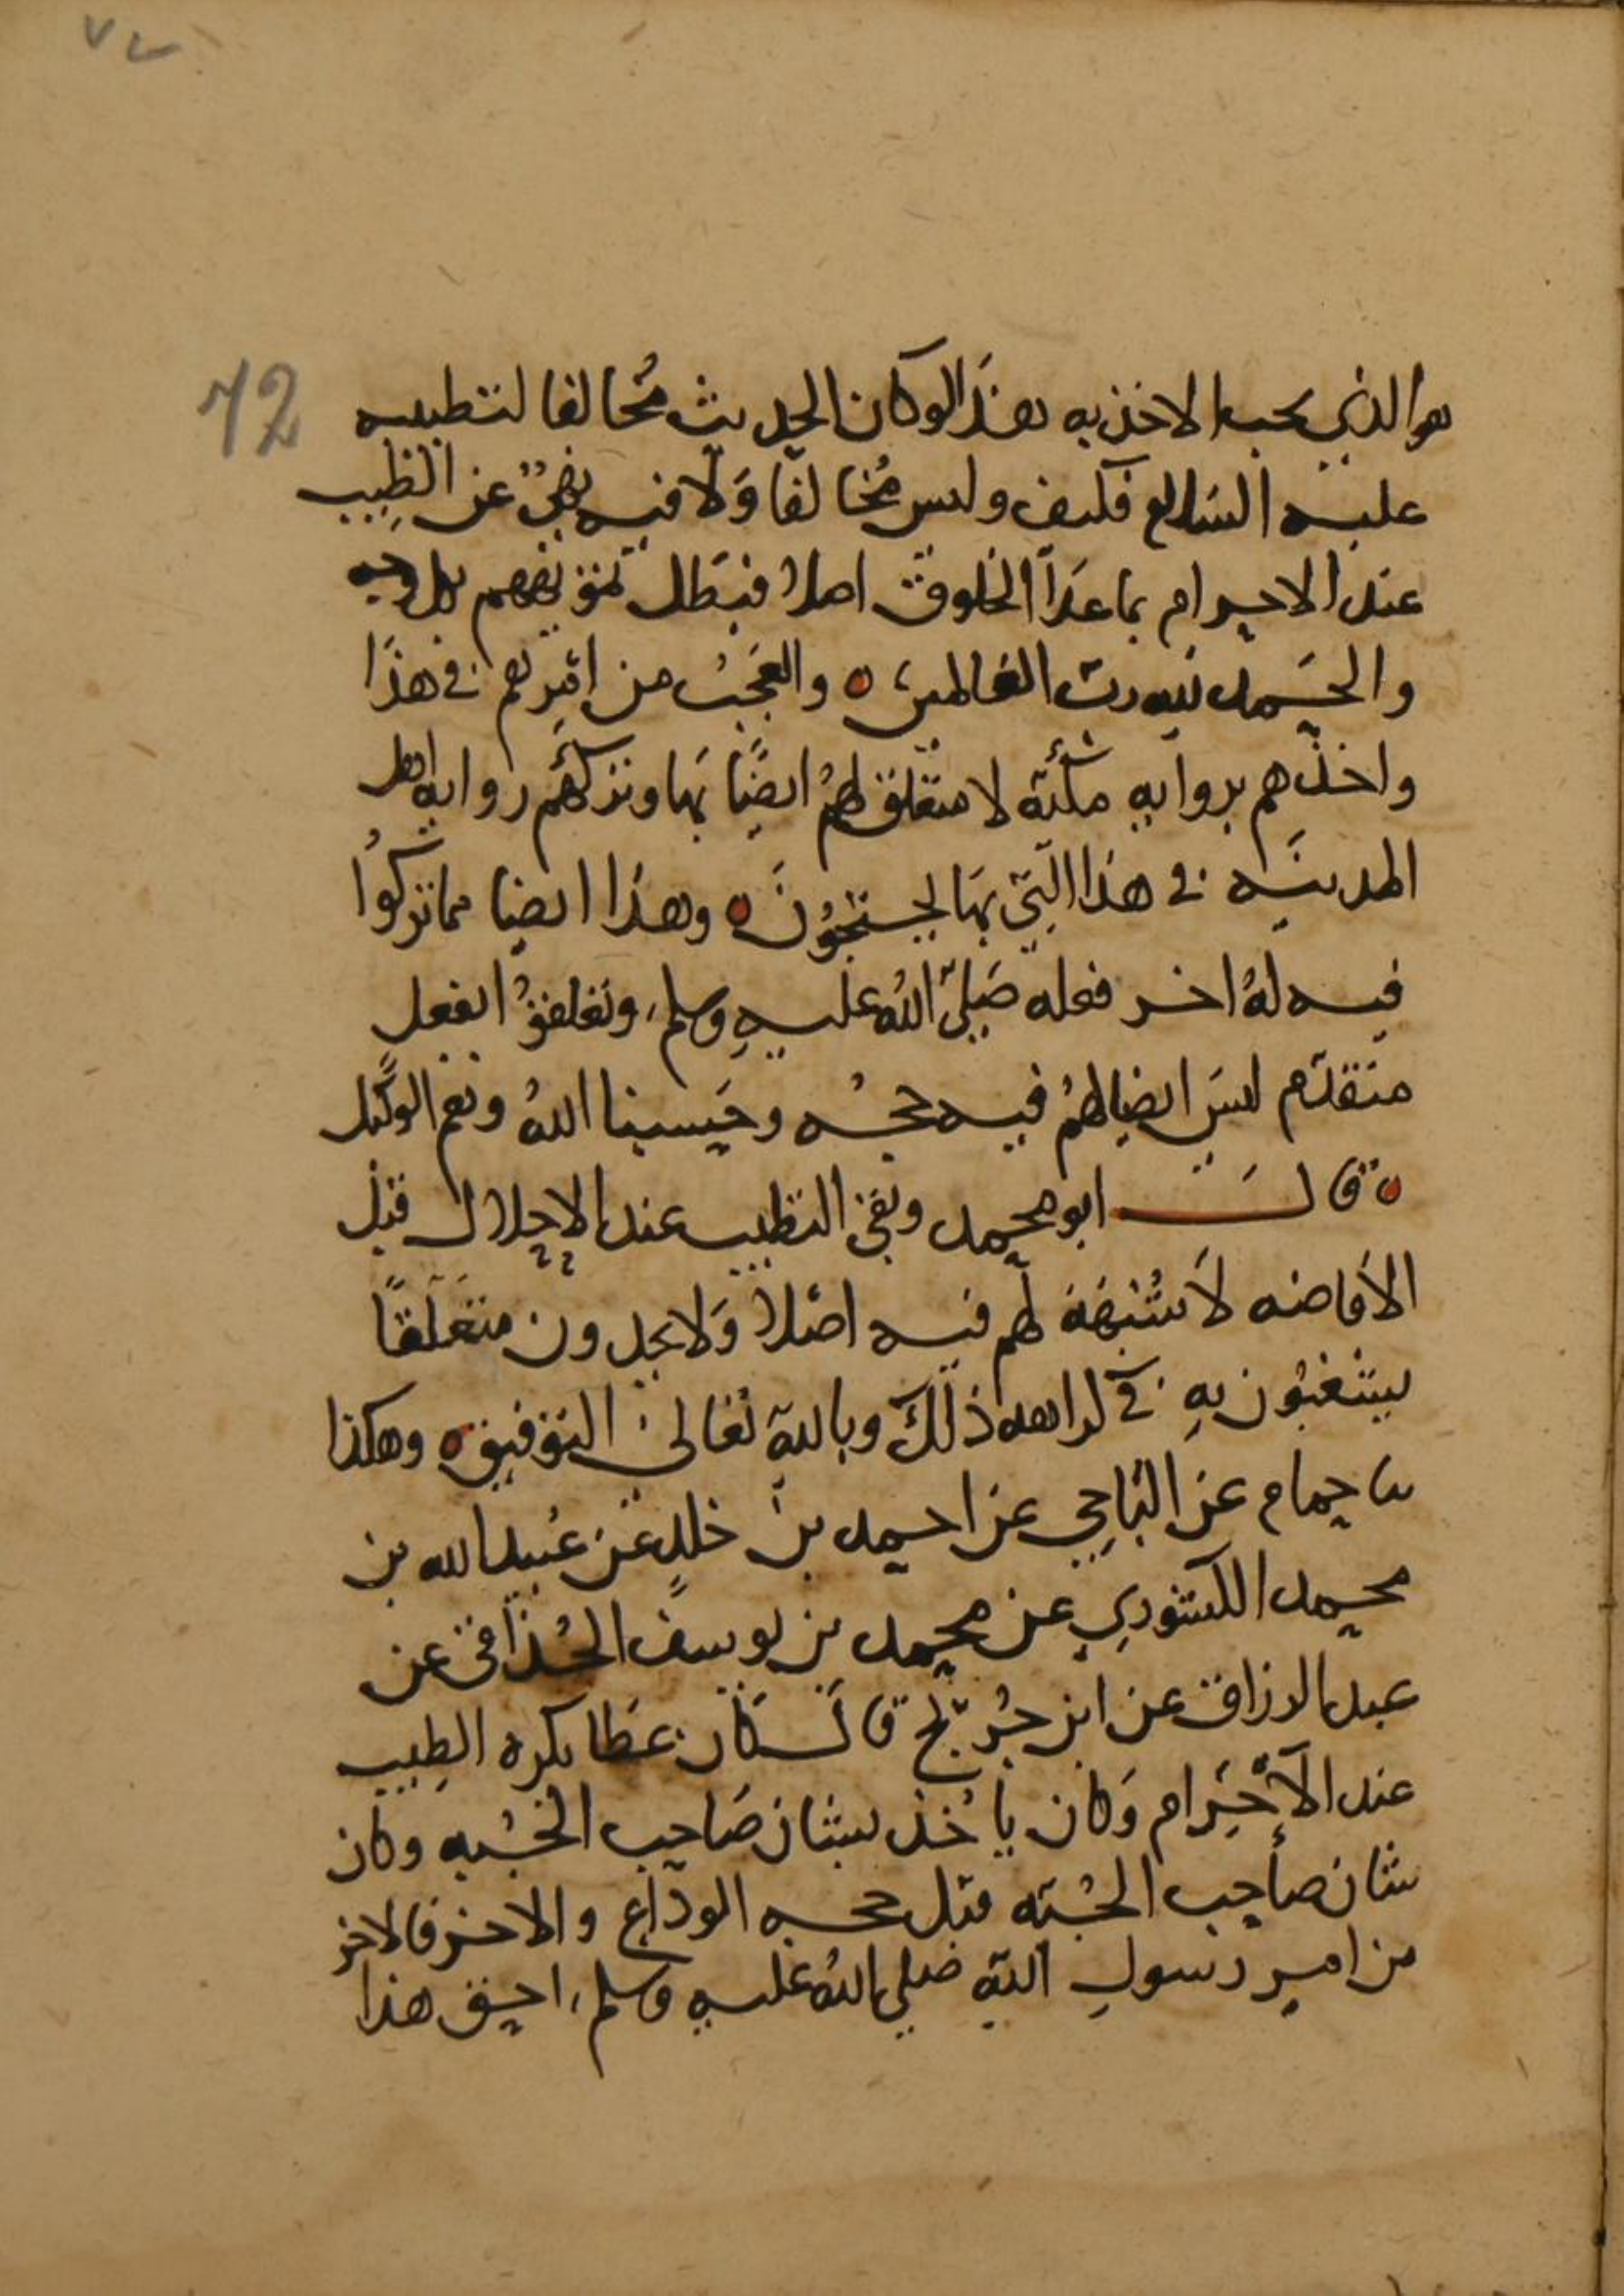 ٧٢
72
هو الذي يجب الاخذ به هذا لو كان الحديث مخالفا لتطيبه
عليه السلام فكيف وليس مخالفا ولا فيه نهي عن الطيب
عند الاحرام بما عدا الخلوق اصلا فبطل تمويههم بكل وجه
والحمد لله رب العالمين ه والعجب من امرهم في هذا
واخذهم برواية مكية لا متعلق لهم ايضا بها وتركهم رواية اهل
المدينة في هذا التي بها يحتجون ه وهذا ايضا مما تركوا
فيه له اخر فعله صلى الله عليه وسلم وتعلقوا بفعل
متقدم ليس ايضا لهم فيه حجه وحسبنا الله ونعم الوكيل
ه قال ابو محمد وبقي التطيب عند الاحلال قبل
الافاضه لا شبهة لهم فيه اصلا ولا يجدون متعلقا
يشغبون به في كراهه ذلك وبالله تعالى التوفيق ه وهكذا
نا حمام عن الباجي عن احمد بن خلد عن عبيد الله بن
محمد الكشوري عن محمد بن يوسف الحذافي عن
عبد الرزاق عن ابن جريج قال كان عطا يكره الطيب
عند الاحرام وكان ياخذ بشان صاحب الجبه وكان
شان صاحب الجبة قبل حجه الوداع والاخر فالاخر
من امر رسول الله صلى الله عليه وسلم احق هذا